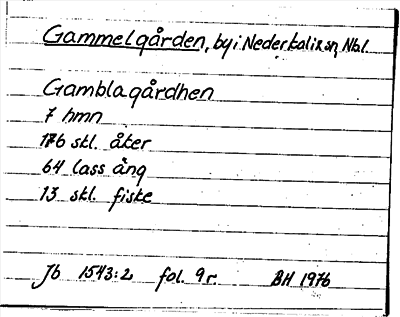 Gammelgården, by i Nederkalix sn, Nbl.
Gamblagårdhen
7 hmn
176 skl. åker
64 lass äng
13 skl. fiske
Jb 1543:2 fol. 9r. BH 1976